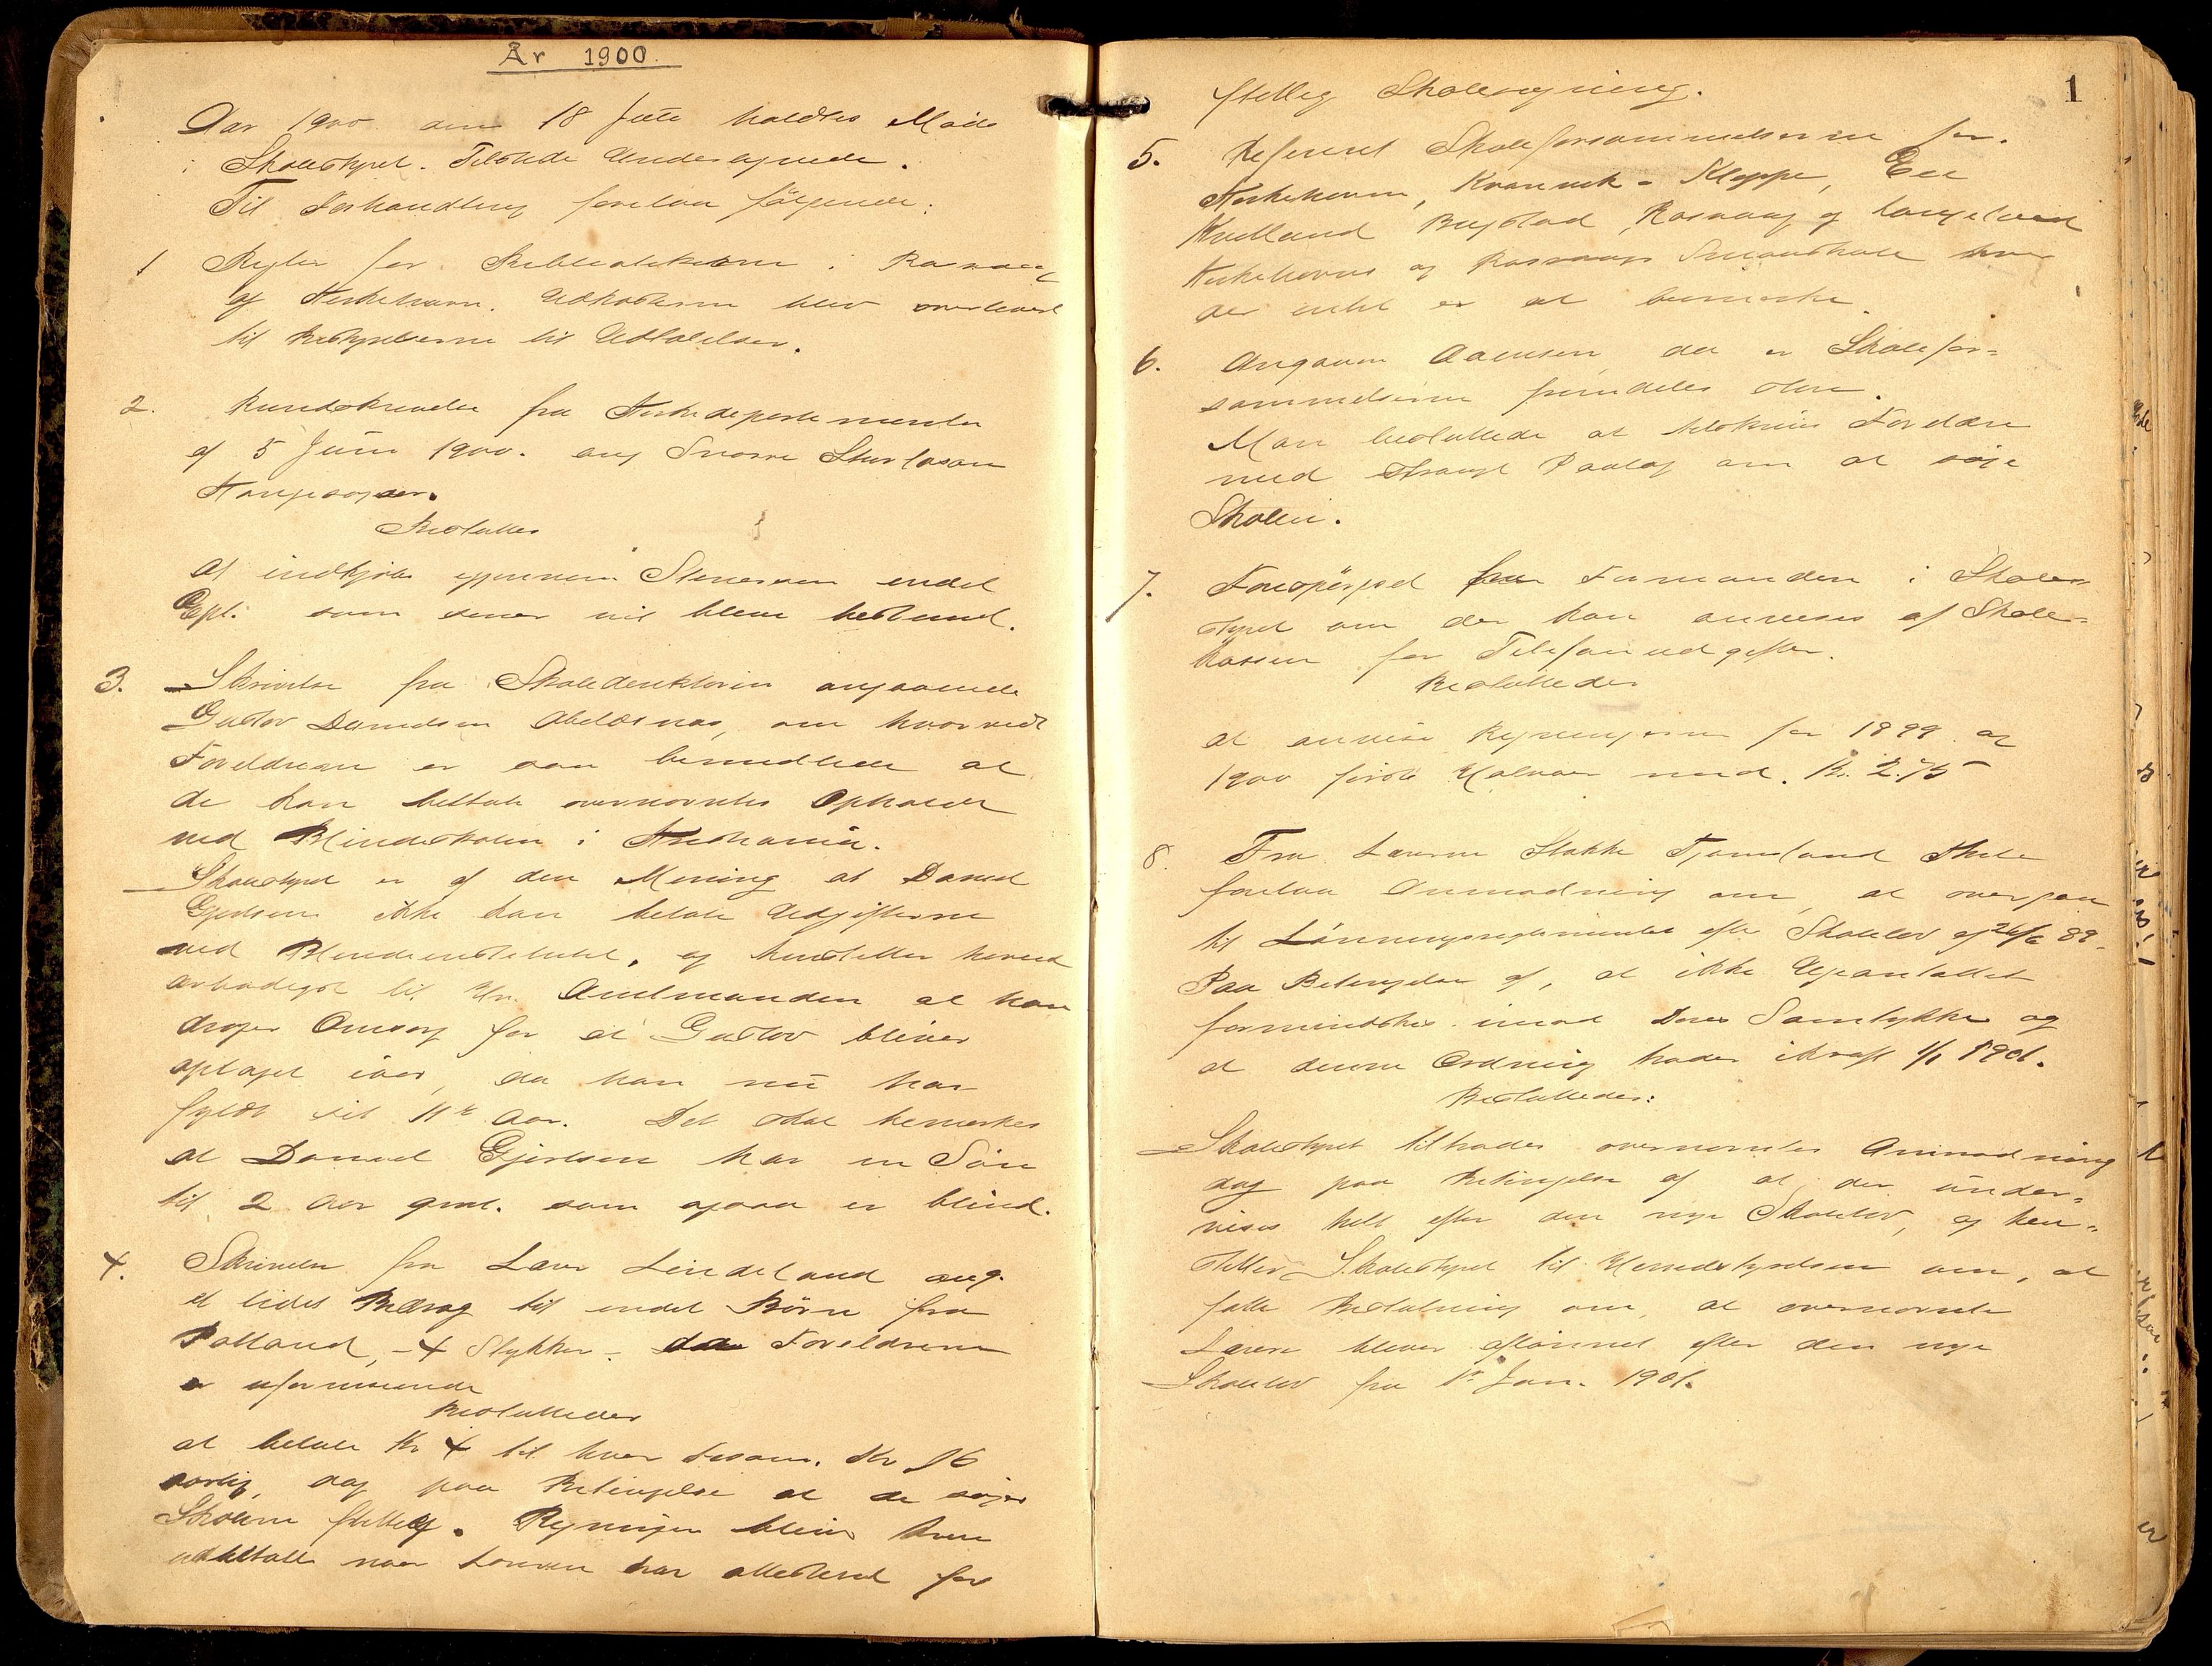 År 1900.
Aar 1900 den 18 Juli holdtes Møde
i Skolestyret. Tilstede Undertegnede.
Til Forhandling forelaa følgende:
1 Regler for Bibliotekerne i Rasvaag
og Kirkehavn. Udkasterne blev overleveret
til Bestyrelserne til Udtalelser.
2. Rundskrivelse fra Kirkedepartementet
af 5 Juni 1900. ang Snorre Sturlason
Kongesagaer.
Besluttes
At indkjøbe gjennem Stenersen endel
Expl. som senere vil blive bestemt.
3. Skrivelse fra Skoledirektøren angaaende
Gustav Danielsen Abelsnes, om hvorvidt
Forældrene er saa bemidlede at
de kan betale overnævntes Ophold
ved Blindeskolen i Kristiania.
Skolestyret er af den Mening at Daniel
Gjertsen ikke kan betale Udgifterne
ved Blindeinstitutet, og henstiller herved
ærbødigst til Hr. Amtmanden at han
drager Omsorg for at Gustav bliver
optaget iaar, da han nu har
fyldt sit 11te Aar. Det skal bemerkes
at Daniel Gjertsen har en Søn
til 2 Aar gml. som ogsaa er blind.
4. Skrivelse fra Lærer Lindeland ang.
et lidet Bidrag til endel Børn fra
Polland, - 4 Stykker - da Forældrene
er uformuende
Besluttedes
at betale Kr 4 til hver tilsam. Kr 16
aarlig, dog paa Betingelse at de søger
Skolen flittig. Regningen bliver
udbetalt naar Læreren har attesteret for
1
flittig Skolesøgning.
5. Referert Skoleforsamlingerne for
Kirkehavn, Kvanvik - Kleppe, Eie
Hvelland Bugstad, Rasvaag og Langeland
Kirkehavns og Rasvaags Smaaskole hvor
der intet er at bemerke.
6. Angaaende da er Skolefor-
sømmelserne fremdeles store.
Man besluttede at tilskrive Forældrene
med strengt Paalæg om at søge
Skolen.
7. Forespørgsel fra Formanden i Skole-
styret om der kan anvises af Skole-
kassen for Telefonudgifter.
Besluttedes
at anvise Regningerne for 1899 og
1900 første Halvaar med Kr. 2.75
8. Fra Lærerne Stakke Tjomsland
forelaa Anmodning om, at overgaa
til Lønningsreglementet efter Skolelov af 26/6 89 -
Paa Betingelse af, at ikke Ugeantallet
formindskes imod Deres Samtykke og
at denne Ordning træder ikraft 1/1 1901.
Besluttedes:
Skolestyret tiltræder overnævntes Anmodning
dog paa Betingelse af at der under-
vises helt efter den nye Skolelov, og hen-
stiller Skolestyret til Herredstyrelsen om, at
fatte Beslutning om, at overnævnte
Lærere bliver aflønnet efter den nye
Skolelov fra 1ste Jan. 1901.